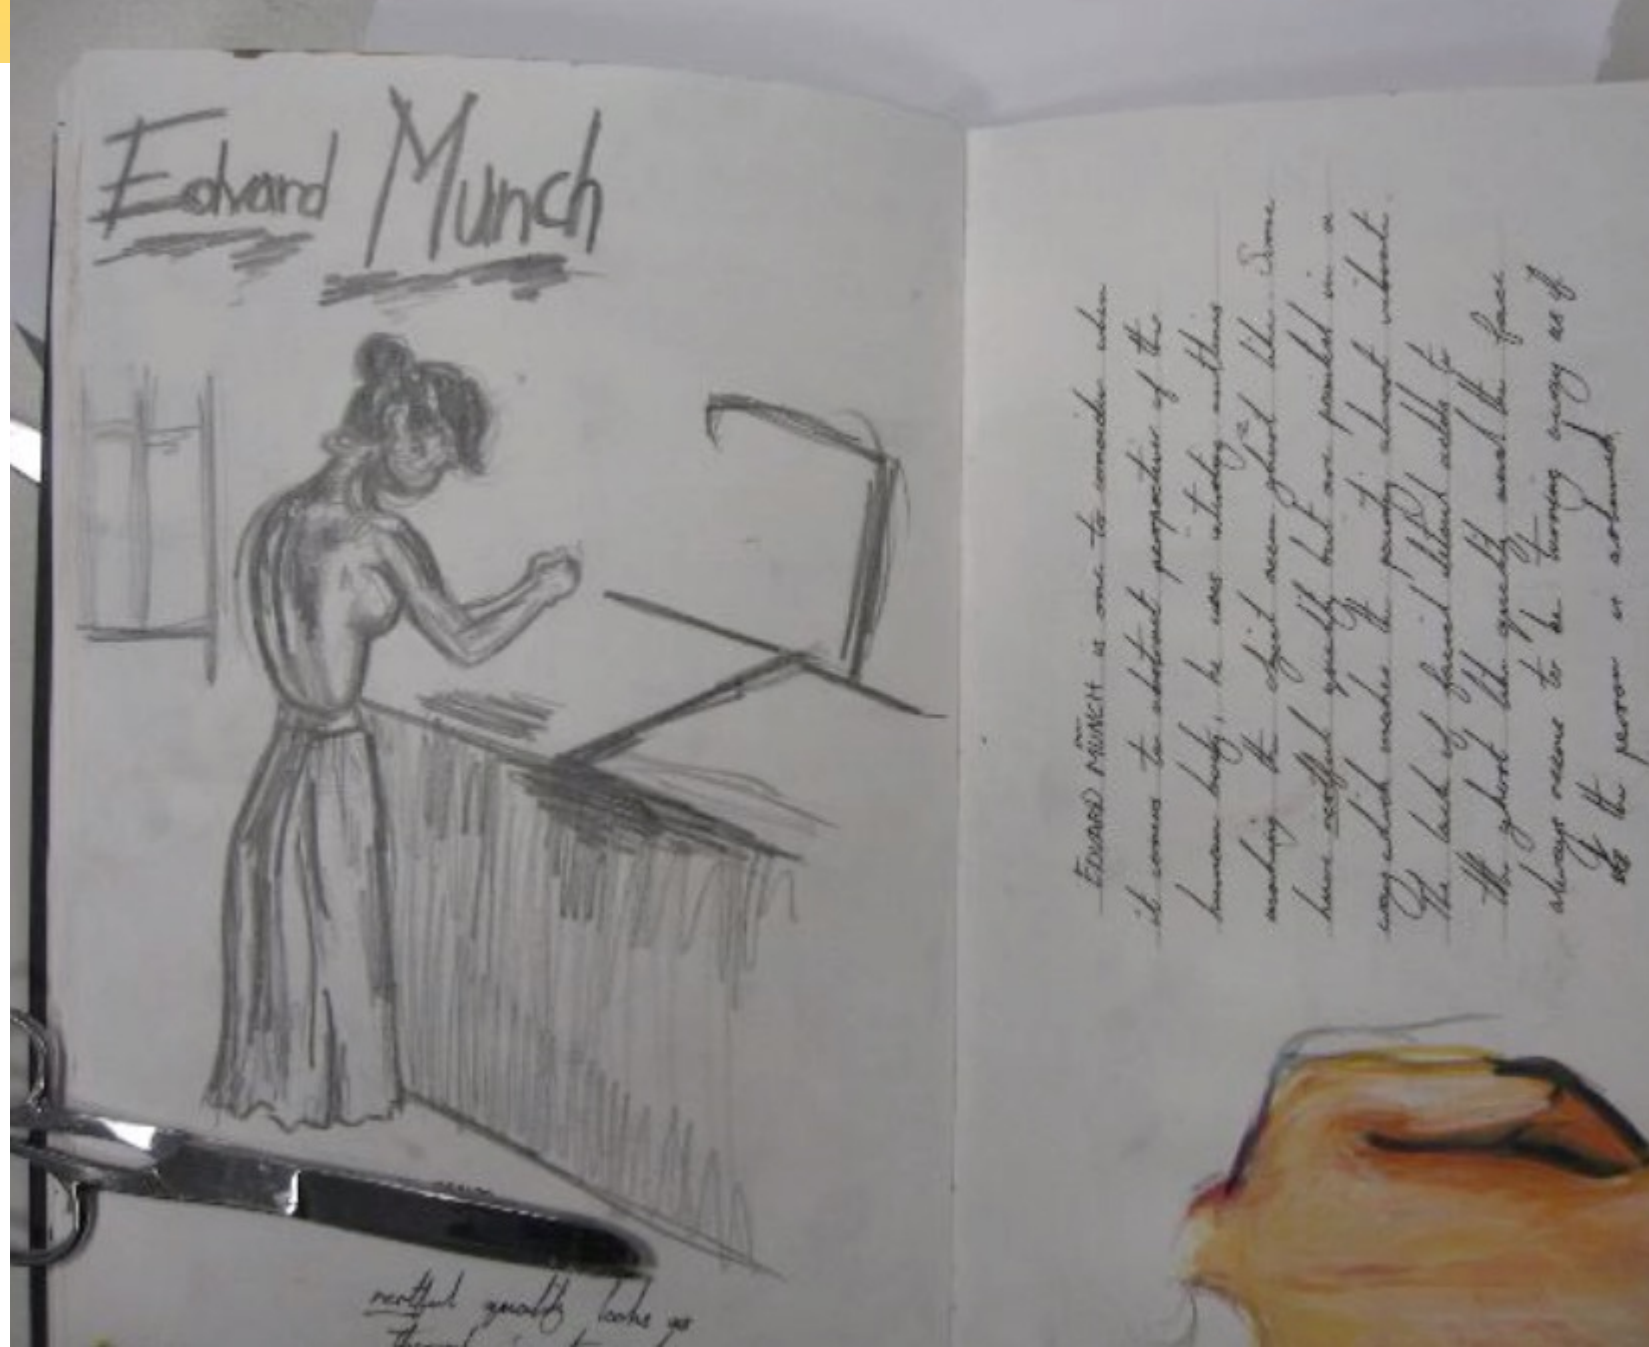 Edvard Munch
EDVARD MUNCH is one to consider when
it comes to abstract properties of the
human body, he was studying
making the object seem ghost like. Some
have restful quality but are painted in a
way which makes the painting almost vibrant.
The lack of facial detail adds to
the ghost like quality and the face
always seems to be turning away as if
if the person is ashamed
restful quality looks as